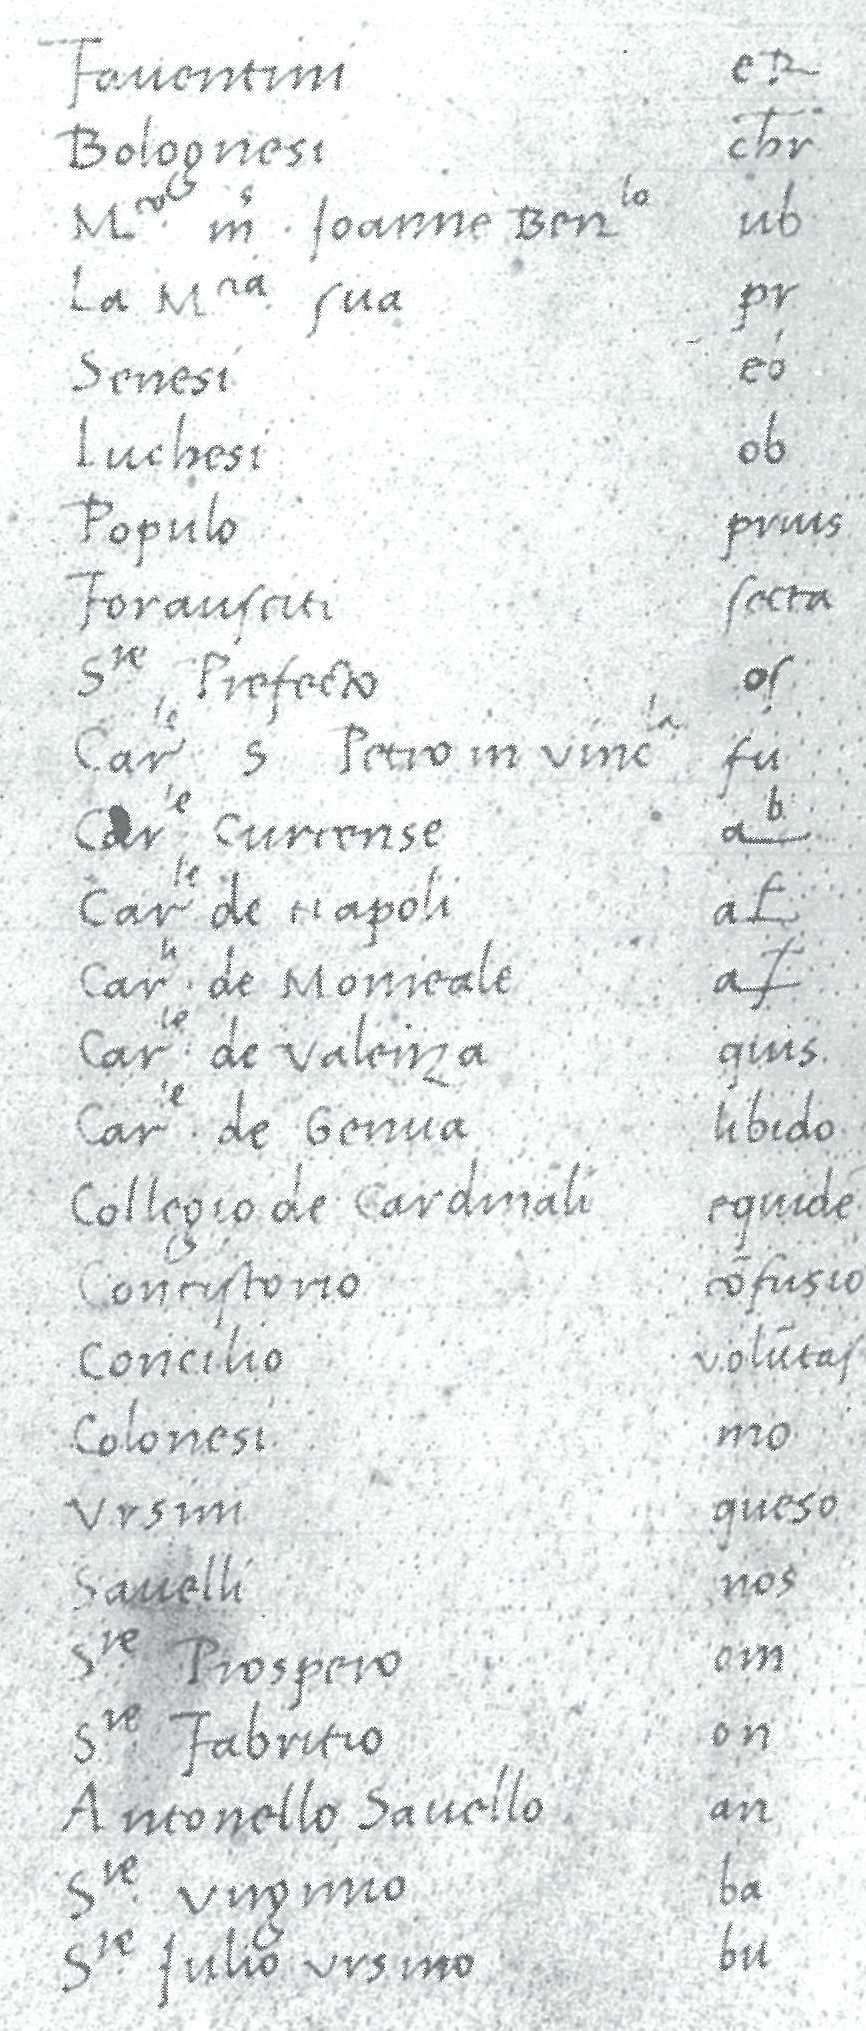 Faventini eR
Bolognesi chr
M.co m.s Joanne Ben.lo ub
La M.cia sua pr
Senesi eo
Luchesi ob
Populo prius
Forausciti secta
S.re Prefecto os
Car.le S Petro in vinc.la fu
Car.le Curcense ab
Car.le de Napoli af
Car.li de Monreale af
Car.le de Valenza quis
Car.le de Genua libido
Collegio de Cardinali equide
Concistorio cōfusio
Concilio volūtas
Colonesi mo
Ursini queso
Savelli nos
S.re Prospero om
S.re Fabritio on
Antonello Savello an
S.re Virginio ba
S.re Julio Ursino bu